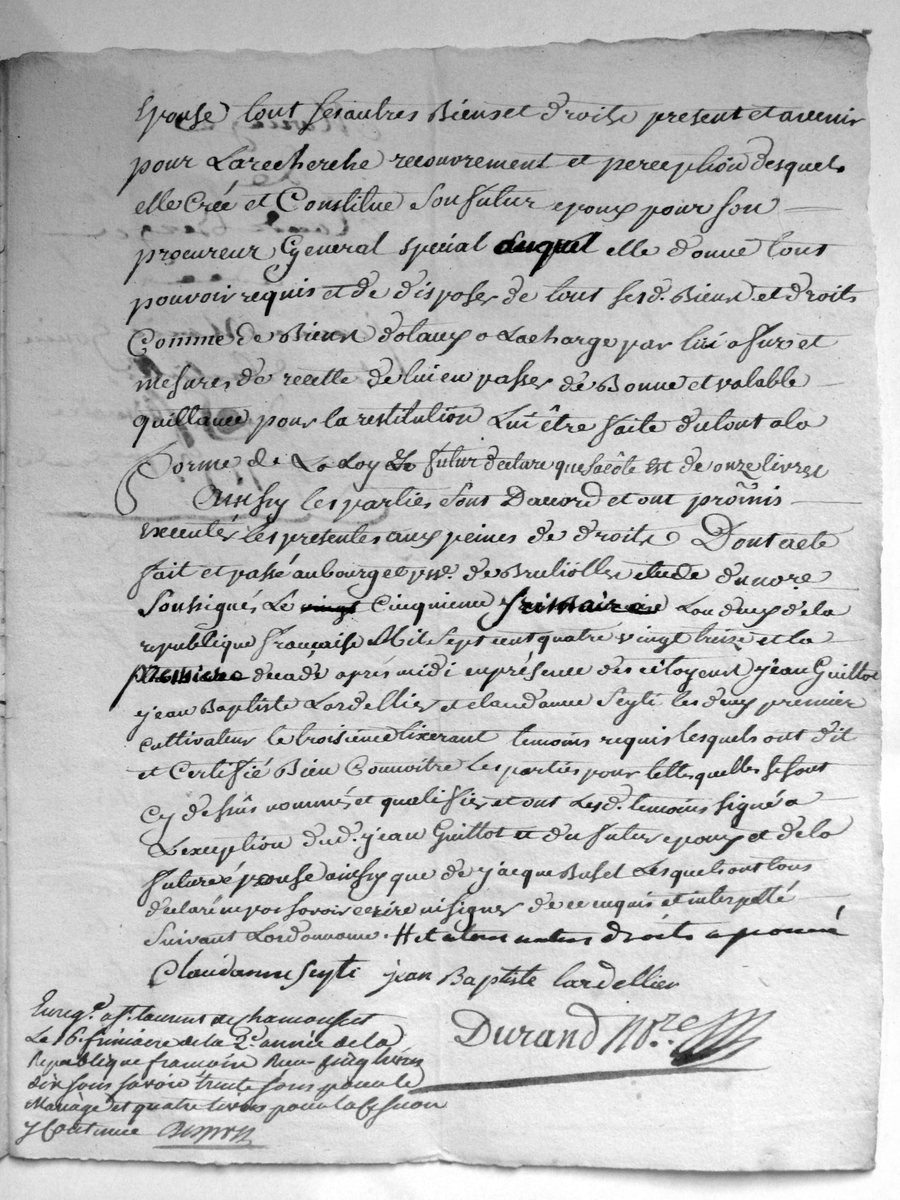 Epouse tout ses autres Biens et droits present et avenir
pour La recherche recouvrement et perception desquels
elle Crée et Constitue Son futur epoux pour Son
procureur General special auquel elle donne tout
pouvoir requis et de disposer de tout ses d. Biens et droits
Comme de Biens dotaux a La charge par lui a fur et
mesures de recette de lui en passer de Bonne et valable
quittance pour la restitution Lui être faite du tout a la
forme de La Loy Le futur declare que sa côte est de onze livres
Ainsy les parties sont Daccord et ont promis
executer les presentes aux peines de droits Dont acte
fait et passé au bourg et p.sse de Brullioles etude du nore
Soussignés Le Cinquieme frimaire Lan deux de la
republique française Mil Sept cent quatre vingt treize et la
premiere decade après midi en présence des citoyens jean Guillot
jean Baptiste Lardellier et claudanne Seyti les deux premier
cultivateur le troisieme temoins requis lesquels ont dit
et Certifié Bien Connoitre Les parties pour telles quelles se sont
Cy dessus nommés et qualifier et ont Les d. temoins signé a
L'exception dud. jean Guillot et du futur epoux et de la
future épouse ainsy que de jacque Buset Lesquels ont tous
declaré ne pas savoir ecrire ni signer de ce enquis et interpellé
Suivant Lordonnance. droits
Claudanne Seyti jean Baptiste Lardellier
Durand Nore
Enreg.é a St. laurent de chamousset
Le 16. frimaire de la 2.e année de la
Republique francoise Reçu cinq livres
dix sous savoir trente sous pour le
Mariage et quatre livres pour la Cession
y Contenue